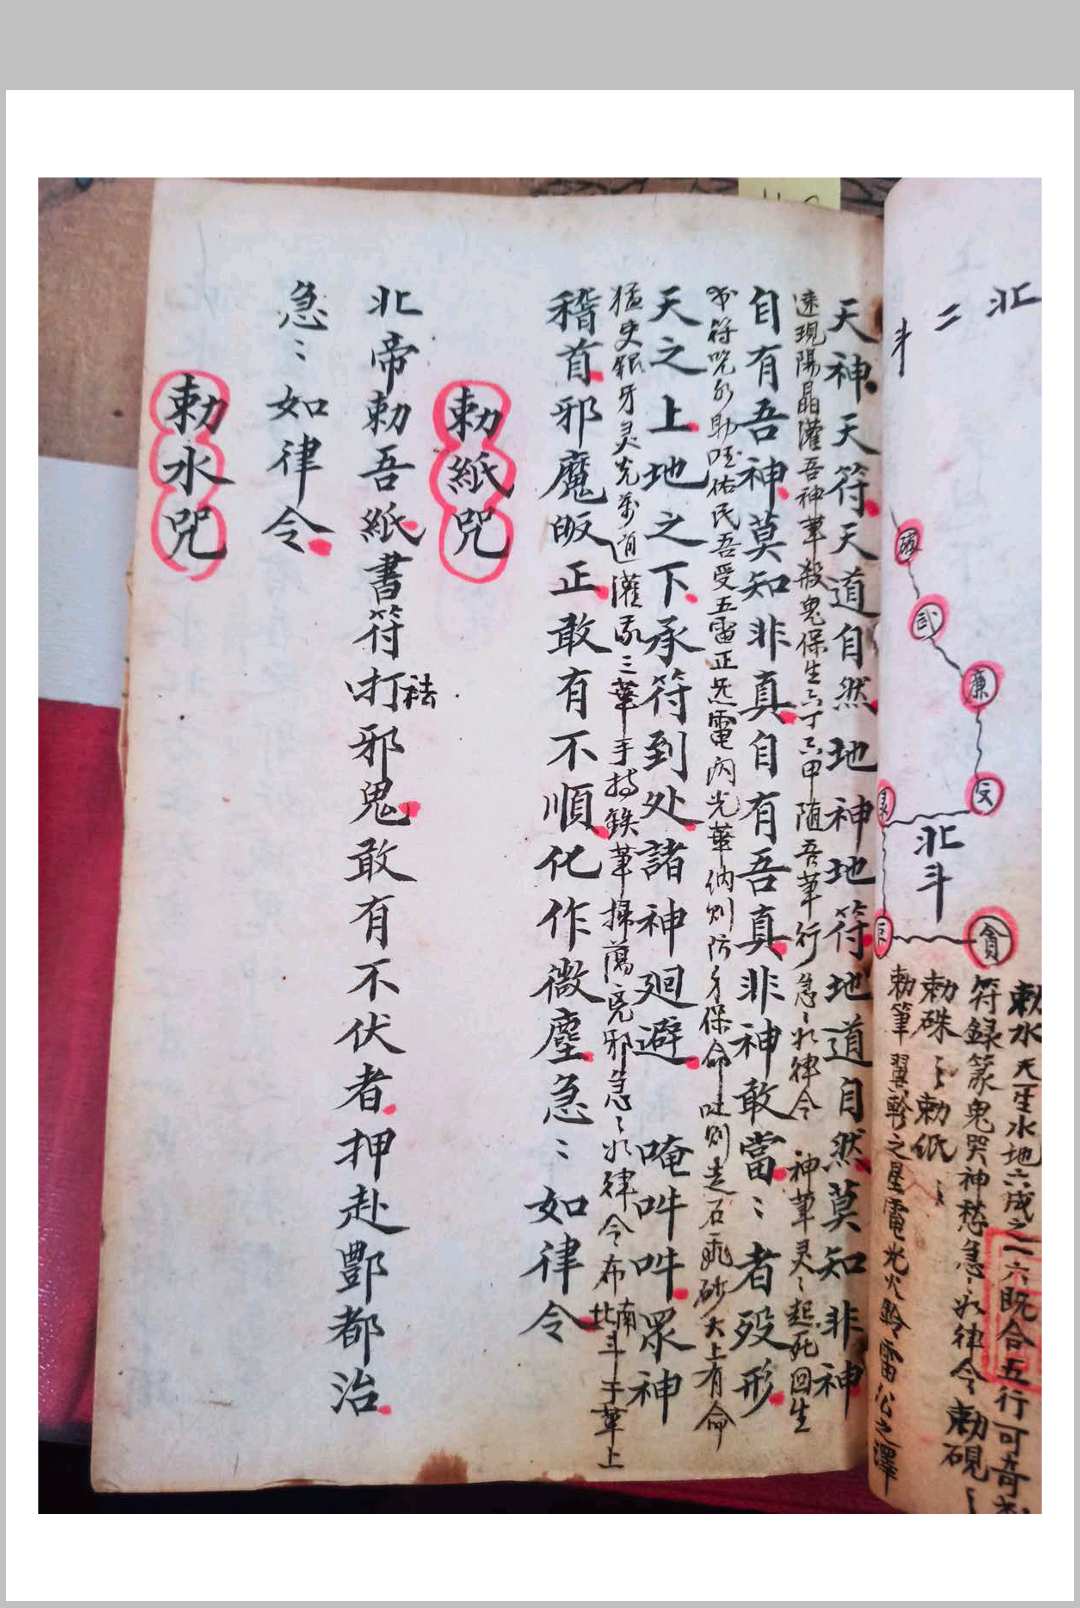 北
二
斗
破
武
廉
文
北斗
貪
敕水天生水地六成之一六既合五行可奇
符録篆鬼哭神愁急〻如律令敕硯〻
敕硃〻敕紙〻
敕筆翼軫之星電光火鈴雷公之澤
天神天符天道自然地神地符地道自然莫知非神
速現陽晶灌吾神筆殺鬼保生六丁六甲随吾筆行急〻如律令 神筆灵〻起死回生
自有吾神莫知非真自有吾真非神敢當〻者殁形
書符咒水助 佑民吾受五雷正炁電閃光華 則防身保命吐則走石飛砂太上有命
天之上地之下承符到处諸神廻避 唵吽吽眾神
猛吏銀牙灵光萬道灌 三華手持鉄筆掃蕩 邪急〻如律令布南北斗于筆上
稽首邪魔皈正敢有不順化作微塵急〻如律令
敕紙咒
北帝勅吾紙書符打邪鬼敢有不伏者押赴酆都治
祛
急〻如律令
敕水咒